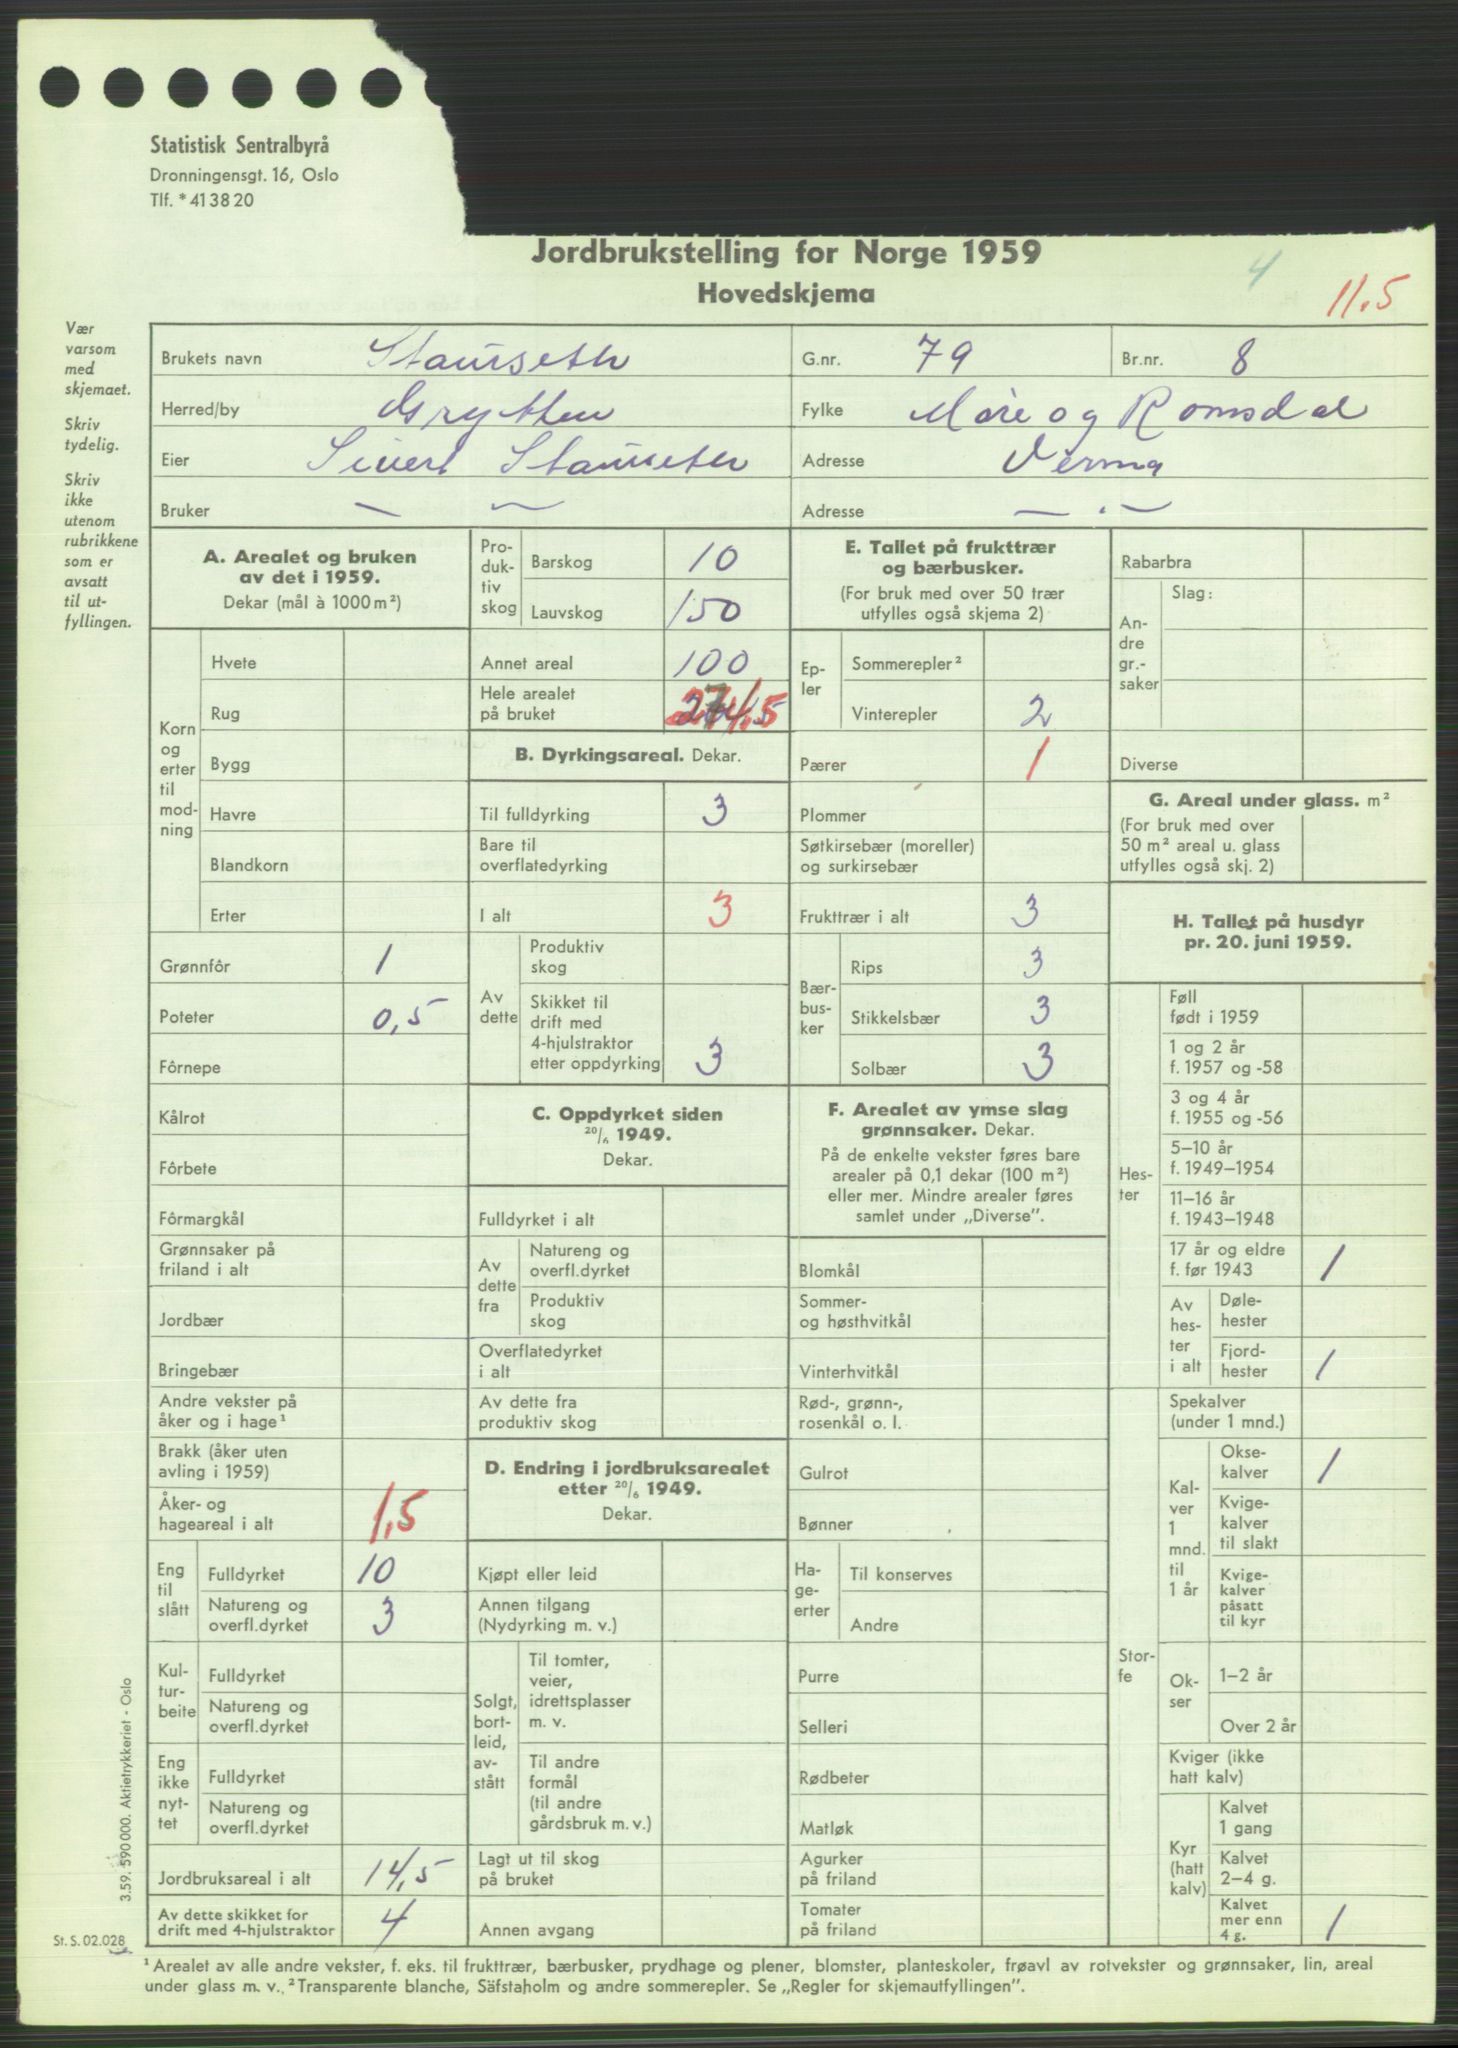 Statistisk Sentralbyrå
Dronningensgt. 16, Oslo
Tlf. * 41 38 20
Jordbrukstelling for Norge 1959
Hovedskjema
4
11.5
Vær
varsom
med
skjemaet.
Skriv
tydelig.
Skriv
ikke
utenom
rubrikkene
som er
avsatt
til ut-
fyllingen.
Brukets navn Staurseth G.nr. 79 Br.nr. 8
Herred/by Grytten Fylke Møre og Romsdal
Eier Sivert Staurseth Adresse Verma
Bruker — — Adresse — . —
A. Arealet og bruken
av det i 1959.
Dekar (mål à 1000 m²)
Korn
og
erter
til
mod-
ning
Hvete
Rug
Bygg
Havre
Blandkorn
Erter
Grønnfôr 1
Poteter 0,5
Fôrnepe
Kålrot
Fôrbete
Fôrmargkål
Grønnsaker på
friland i alt
Jordbær
Bringebær
Andre vekster på
åker og i hage¹
Brakk (åker uten
avling i 1959)
Åker- og
hageareal i alt 1,5
Eng
til
slått
Fulldyrket 10
Natureng og
overfl.dyrket 3
Kul-
tur-
beite
Fulldyrket
Natureng og
overfl.dyrket
Eng
ikke
nyt-
tet
Fulldyrket
Natureng og
overfl.dyrket
Jordbruksareal i alt 14,5
Av dette skikket for
drift med 4-hjulstraktor 4
Pro-
duk-
tiv
skog
Barskog 10
Lauvskog 150
Annet areal 100
Hele arealet
på bruket 274,5
B. Dyrkingsareal. Dekar.
Til fulldyrking 3
Bare til
overflatedyrking
I alt 3
Av
dette
Produktiv
skog
Skikket til
drift med
4-hjulstraktor
etter oppdyrking 3
C. Oppdyrket siden
20/6 1949.
Dekar.
Fulldyrket i alt
Av
dette
fra
Natureng og
overfl.dyrket
Produktiv
skog
Overflatedyrket
i alt
Av dette fra
produktiv skog
D. Endring i jordbruksarealet
etter 20/6 1949.
Dekar.
Kjøpt eller leid
Annen tilgang
(Nydyrking m. v.)
Solgt,
bort-
leid,
av-
stått
Til tomter,
veier,
idrettsplasser
m. v.
Til andre
formål
(til andre
gårdsbruk m. v.)
Lagt ut til skog
på bruket
Annen avgang
E. Tallet på frukttrær
og bærbusker.
(For bruk med over 50 trær
utfylles også skjema 2)
Ep-
ler
Sommerepler²
Vinterepler 2
Pærer 1
Plommer
Søtkirsebær (moreller)
og surkirsebær
Frukttrær i alt 3
Bær-
bus-
ker
Rips 3
Stikkelsbær 3
Solbær 3
F. Arealet av ymse slag
grønnsaker. Dekar.
På de enkelte vekster føres bare
arealer på 0,1 dekar (100 m²)
eller mer. Mindre arealer føres
samlet under „Diverse".
Blomkål
Sommer-
og høsthvitkål
Vinterhvitkål
Rød-, grønn-,
rosenkål o. l.
Gulrot
Bønner
Ha-
ge-
erter
Til konserves
Andre
Purre
Selleri
Rødbeter
Matløk
Agurker
på friland
Tomater
på friland
Rabarbra
An-
dre
gr.-
saker
Slag:
Diverse
G. Areal under glass. m²
(For bruk med over
50 m² areal u. glass
utfylles også skj. 2)
H. Tallet på husdyr
pr. 20. juni 1959.
Hes-
ter
Føll
født i 1959
1 og 2 år
f. 1957 og -58
3 og 4 år
f. 1955 og -56
5–10 år
f. 1949–1954
11–16 år
f. 1943–1948
17 år og eldre
f. før 1943 1
Av
hes-
ter
i alt
Døle-
hester
Fjord-
hester 1
Stor-
fe
Spekalver
(under 1 mnd.)
Kal-
ver
1
mnd.
til
1 år
Okse-
kalver 1
Kvige-
kalver
til slakt
Kvige-
kalver
påsatt
til kyr
Ok-
ser
1–2 år
Over 2 år
Kviger (ikke
hatt kalv)
Kyr
(hatt
kalv)
Kalvet
1 gang
Kalvet
2–4 g.
Kalvet
mer enn
4 g. 1
3.59. 590 000. Aktietrykkeriet - Oslo
St. S. 02.028
¹ Arealet av alle andre vekster, f. eks. til frukttrær, bærbusker, prydhage og plener, blomster, planteskoler, frøavl av rotvekster og grønnsaker, lin, areal
under glass m. v. ² Transparente blanche, Säfstaholm og andre sommerepler. Se „Regler for skjemautfyllingen".